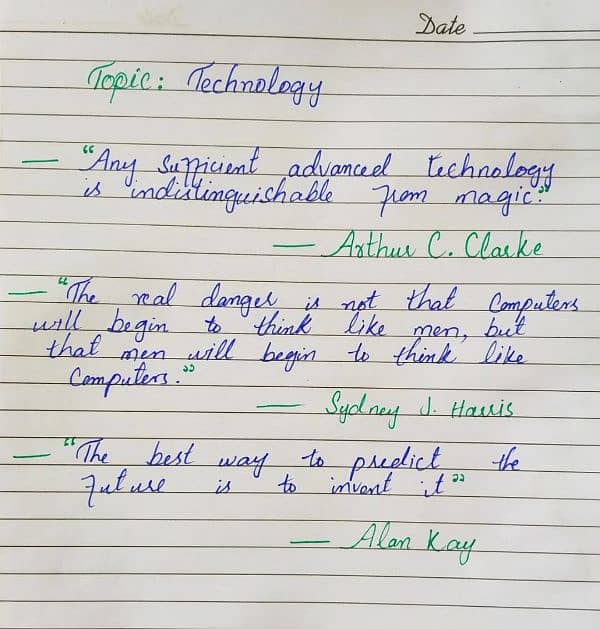 Date
Topic: Technology
— "Any Sufficient advanced technology
is indistinguishable from magic."
— Arthur C. Clarke
— "The real danger is not that Computers
will begin to think like men, but
that men will begin to think like
Computers."
— Sydney J. Harris
— "The best way to predict the
Future is to invent it"
— Alan Kay